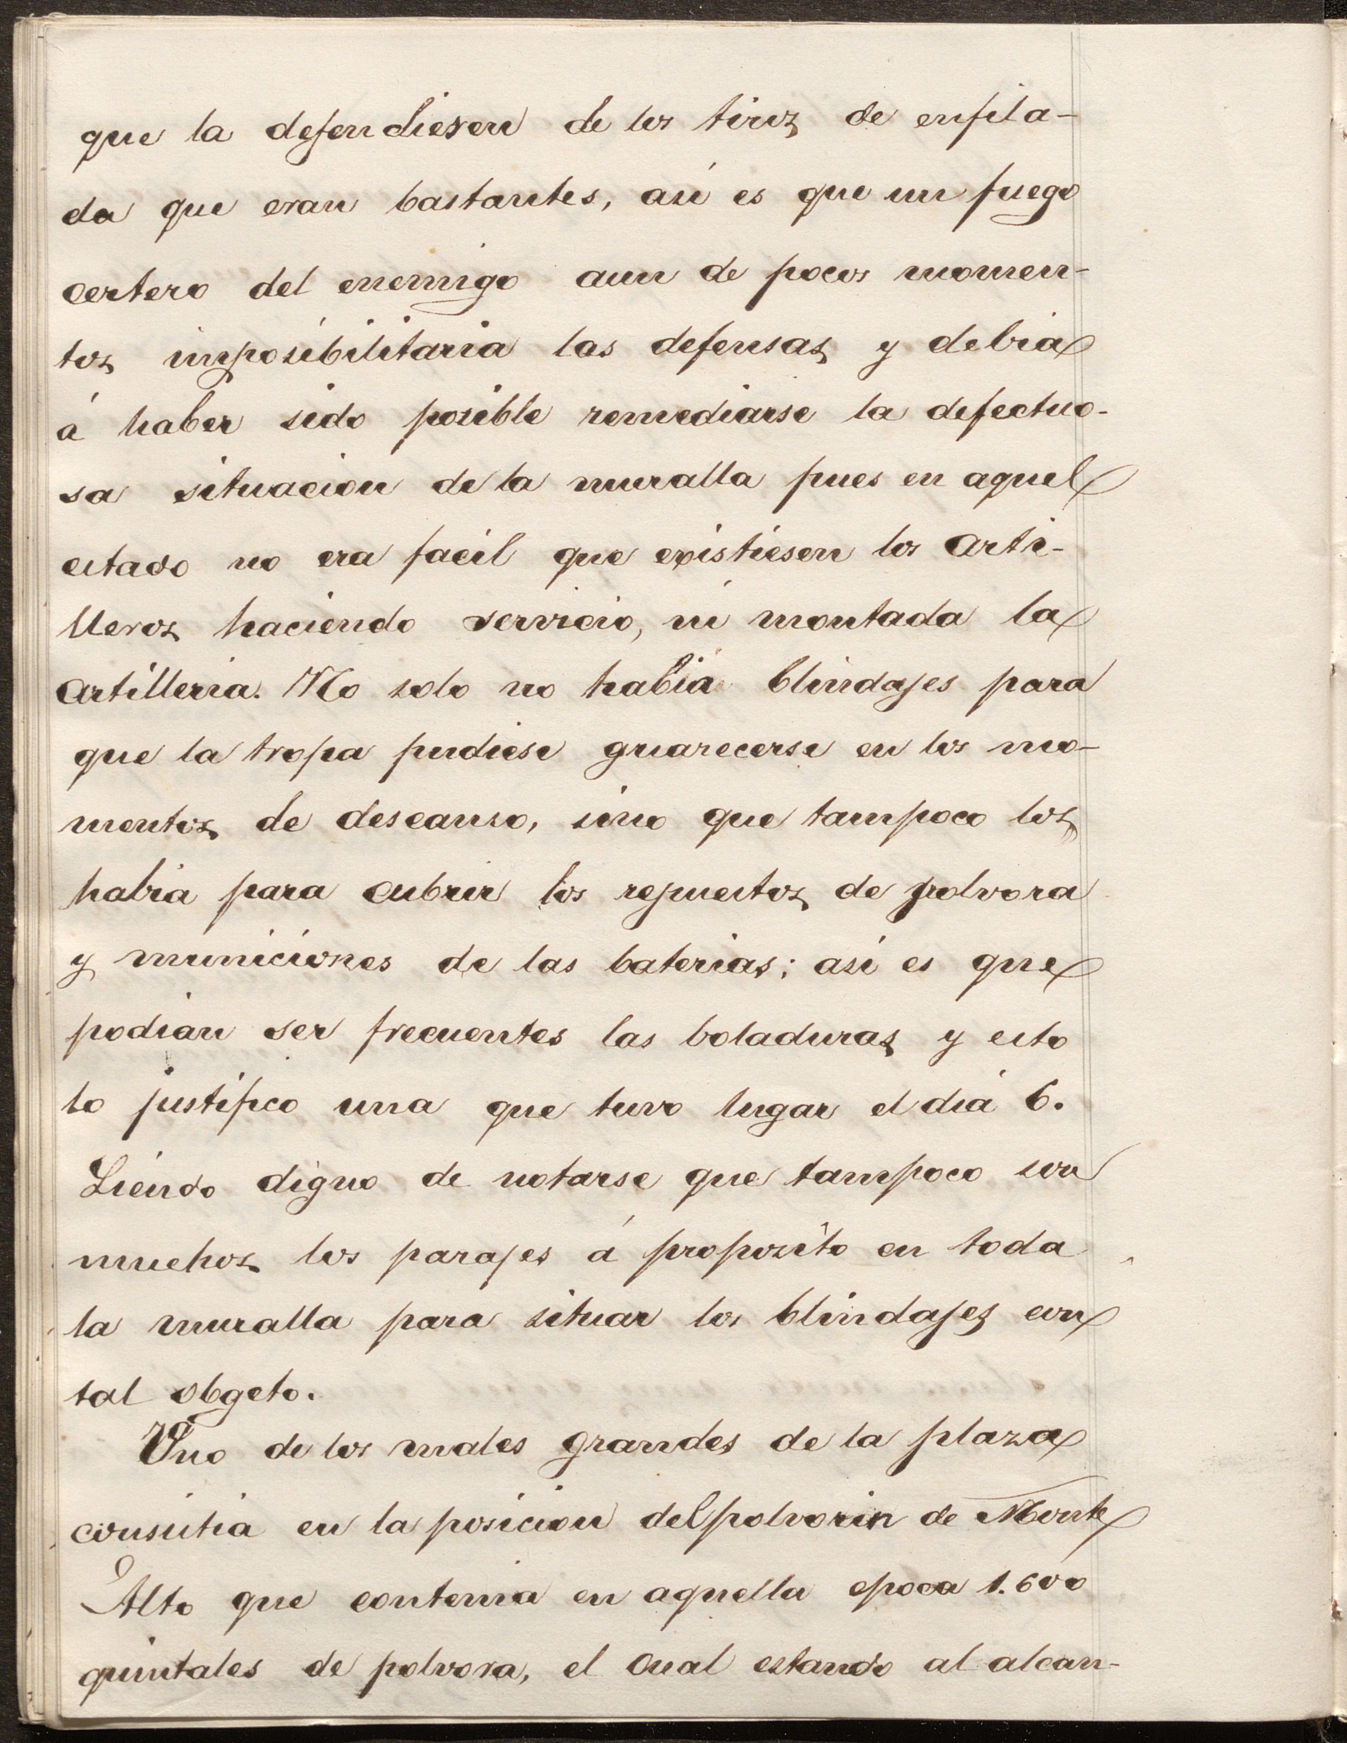 que la defendiesen de los tiros de enfila-
da que eran bastantes, asi es que un fuego
certero del enemigo aun de pocos momen-
tos imposibilitaria las defensas y debia
á haber sido posible remediarse la defectuo-
sa situacion de la muralla pues en aquel
estado no era facil que existiesen los arti-
lleros haciendo servicio, ni montada la
artilleria. No solo no habia blindajes para
que la tropa pudiese guarecerse en los mo-
mentos de descanso, sino que tampoco los
habia para cubrir los repuestos de polvora
y municiones de las baterias; asi es que
podian ser frecuentes las boladuras y esto
lo justifico una que tuvo lugar el dia 6.
Siendo digno de notarse que tampoco son
muchos los parajes á proposito en toda
la muralla para situar los blindajes con
tal obgeto.
Uno de los males grandes de la plaza
consistia en la posicion del polvorin de Monte
Alto que contenia en aquella epoca 1.600
quintales de polvora, el cual estando al alcan-